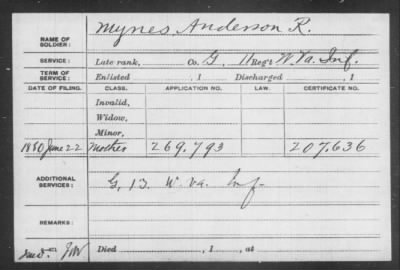 Mynes Anderson R.
NAME OF SOLDIER:
SERVICE: Late rank, Co. G, 11 Reg't W. Va. Inf.
TERM OF SERVICE: Enlisted , 1 Discharged , 1
DATE OF FILING. CLASS. APPLICATION NO. LAW. CERTIFICATE NO.
Invalid,
Widow,
Minor,
1880 June 22 Mother 269.793 207.636
ADDITIONAL SERVICES: G, 13. W. Va. Inf.
REMARKS:
Died , 1 , at